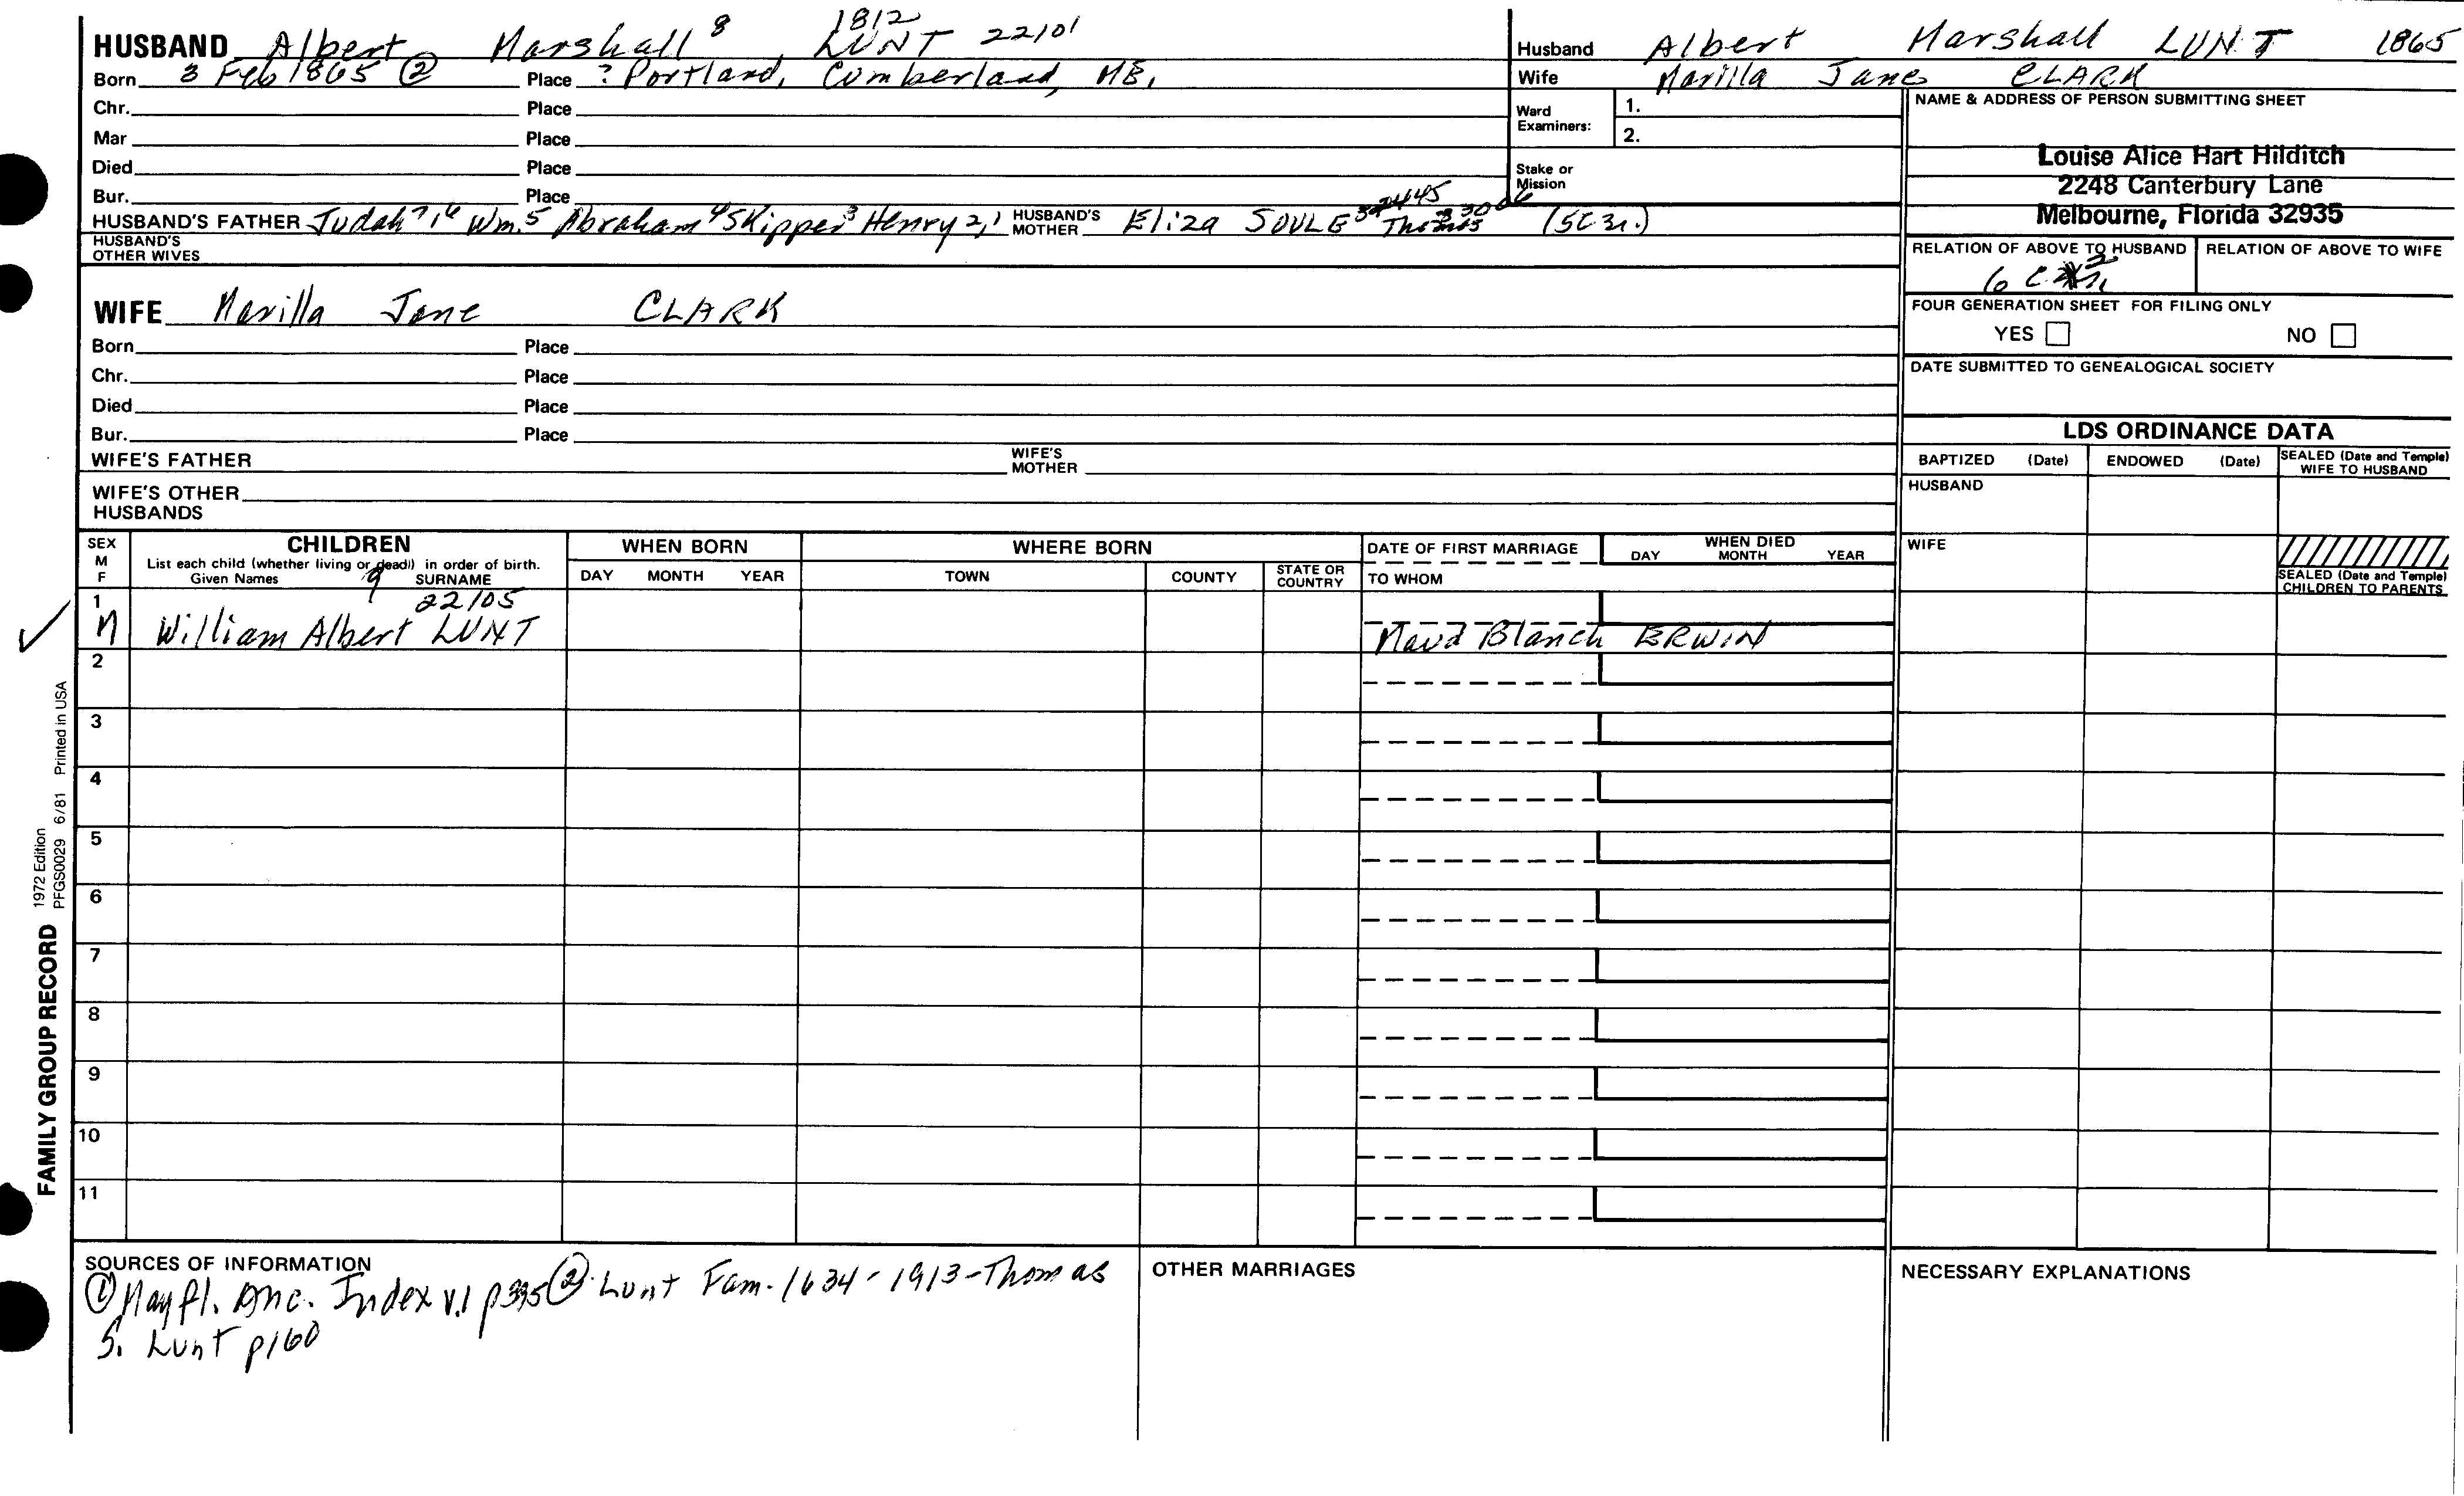 1812
HUSBAND Albert Marshall 8 LUNT 22101
Born 3 Feb 1865 ② Place ? Portland, Cumberland, ME.
Chr. Place
Mar Place
Died Place
Bur. Place
HUSBAND'S FATHER Judah 7,6 Wm. 5 Abraham 4 Skipper 3 Henry 2,1 HUSBAND'S MOTHER Eliza SOULE (SC3r.)
HUSBAND'S OTHER WIVES
WIFE Marilla Jane CLARK
Born Place
Chr. Place
Died Place
Bur. Place
WIFE'S FATHER WIFE'S MOTHER
WIFE'S OTHER HUSBANDS
Husband Albert Marshall LUNT 1865
Wife Marilla Jane CLARK
Ward Examiners: 1.
2.
Stake or Mission
NAME & ADDRESS OF PERSON SUBMITTING SHEET
Louise Alice Hart Hilditch
2248 Canterbury Lane
Melbourne, Florida 32935
RELATION OF ABOVE TO HUSBAND RELATION OF ABOVE TO WIFE
6 C
FOUR GENERATION SHEET FOR FILING ONLY
YES NO
DATE SUBMITTED TO GENEALOGICAL SOCIETY
LDS ORDINANCE DATA
BAPTIZED (Date) ENDOWED (Date) SEALED (Date and Temple) WIFE TO HUSBAND
HUSBAND
WIFE
SEALED (Date and Temple) CHILDREN TO PARENTS
SEX M F
CHILDREN
List each child (whether living or dead) in order of birth.
Given Names 9 SURNAME
WHEN BORN
DAY MONTH YEAR
WHERE BORN
TOWN COUNTY STATE OR COUNTRY
DATE OF FIRST MARRIAGE
TO WHOM
WHEN DIED
DAY MONTH YEAR
1 22105
M William Albert LUNT Maud Blanch ERWIN
2
3
4
5
6
7
8
9
10
11
FAMILY GROUP RECORD 1972 Edition
PFGS0029 6/81 Printed in USA
SOURCES OF INFORMATION
① Mayfl. Anc. Index v.1 p395 ② Lunt Fam. 1634-1913-Thomas
S. Lunt p160
OTHER MARRIAGES
NECESSARY EXPLANATIONS